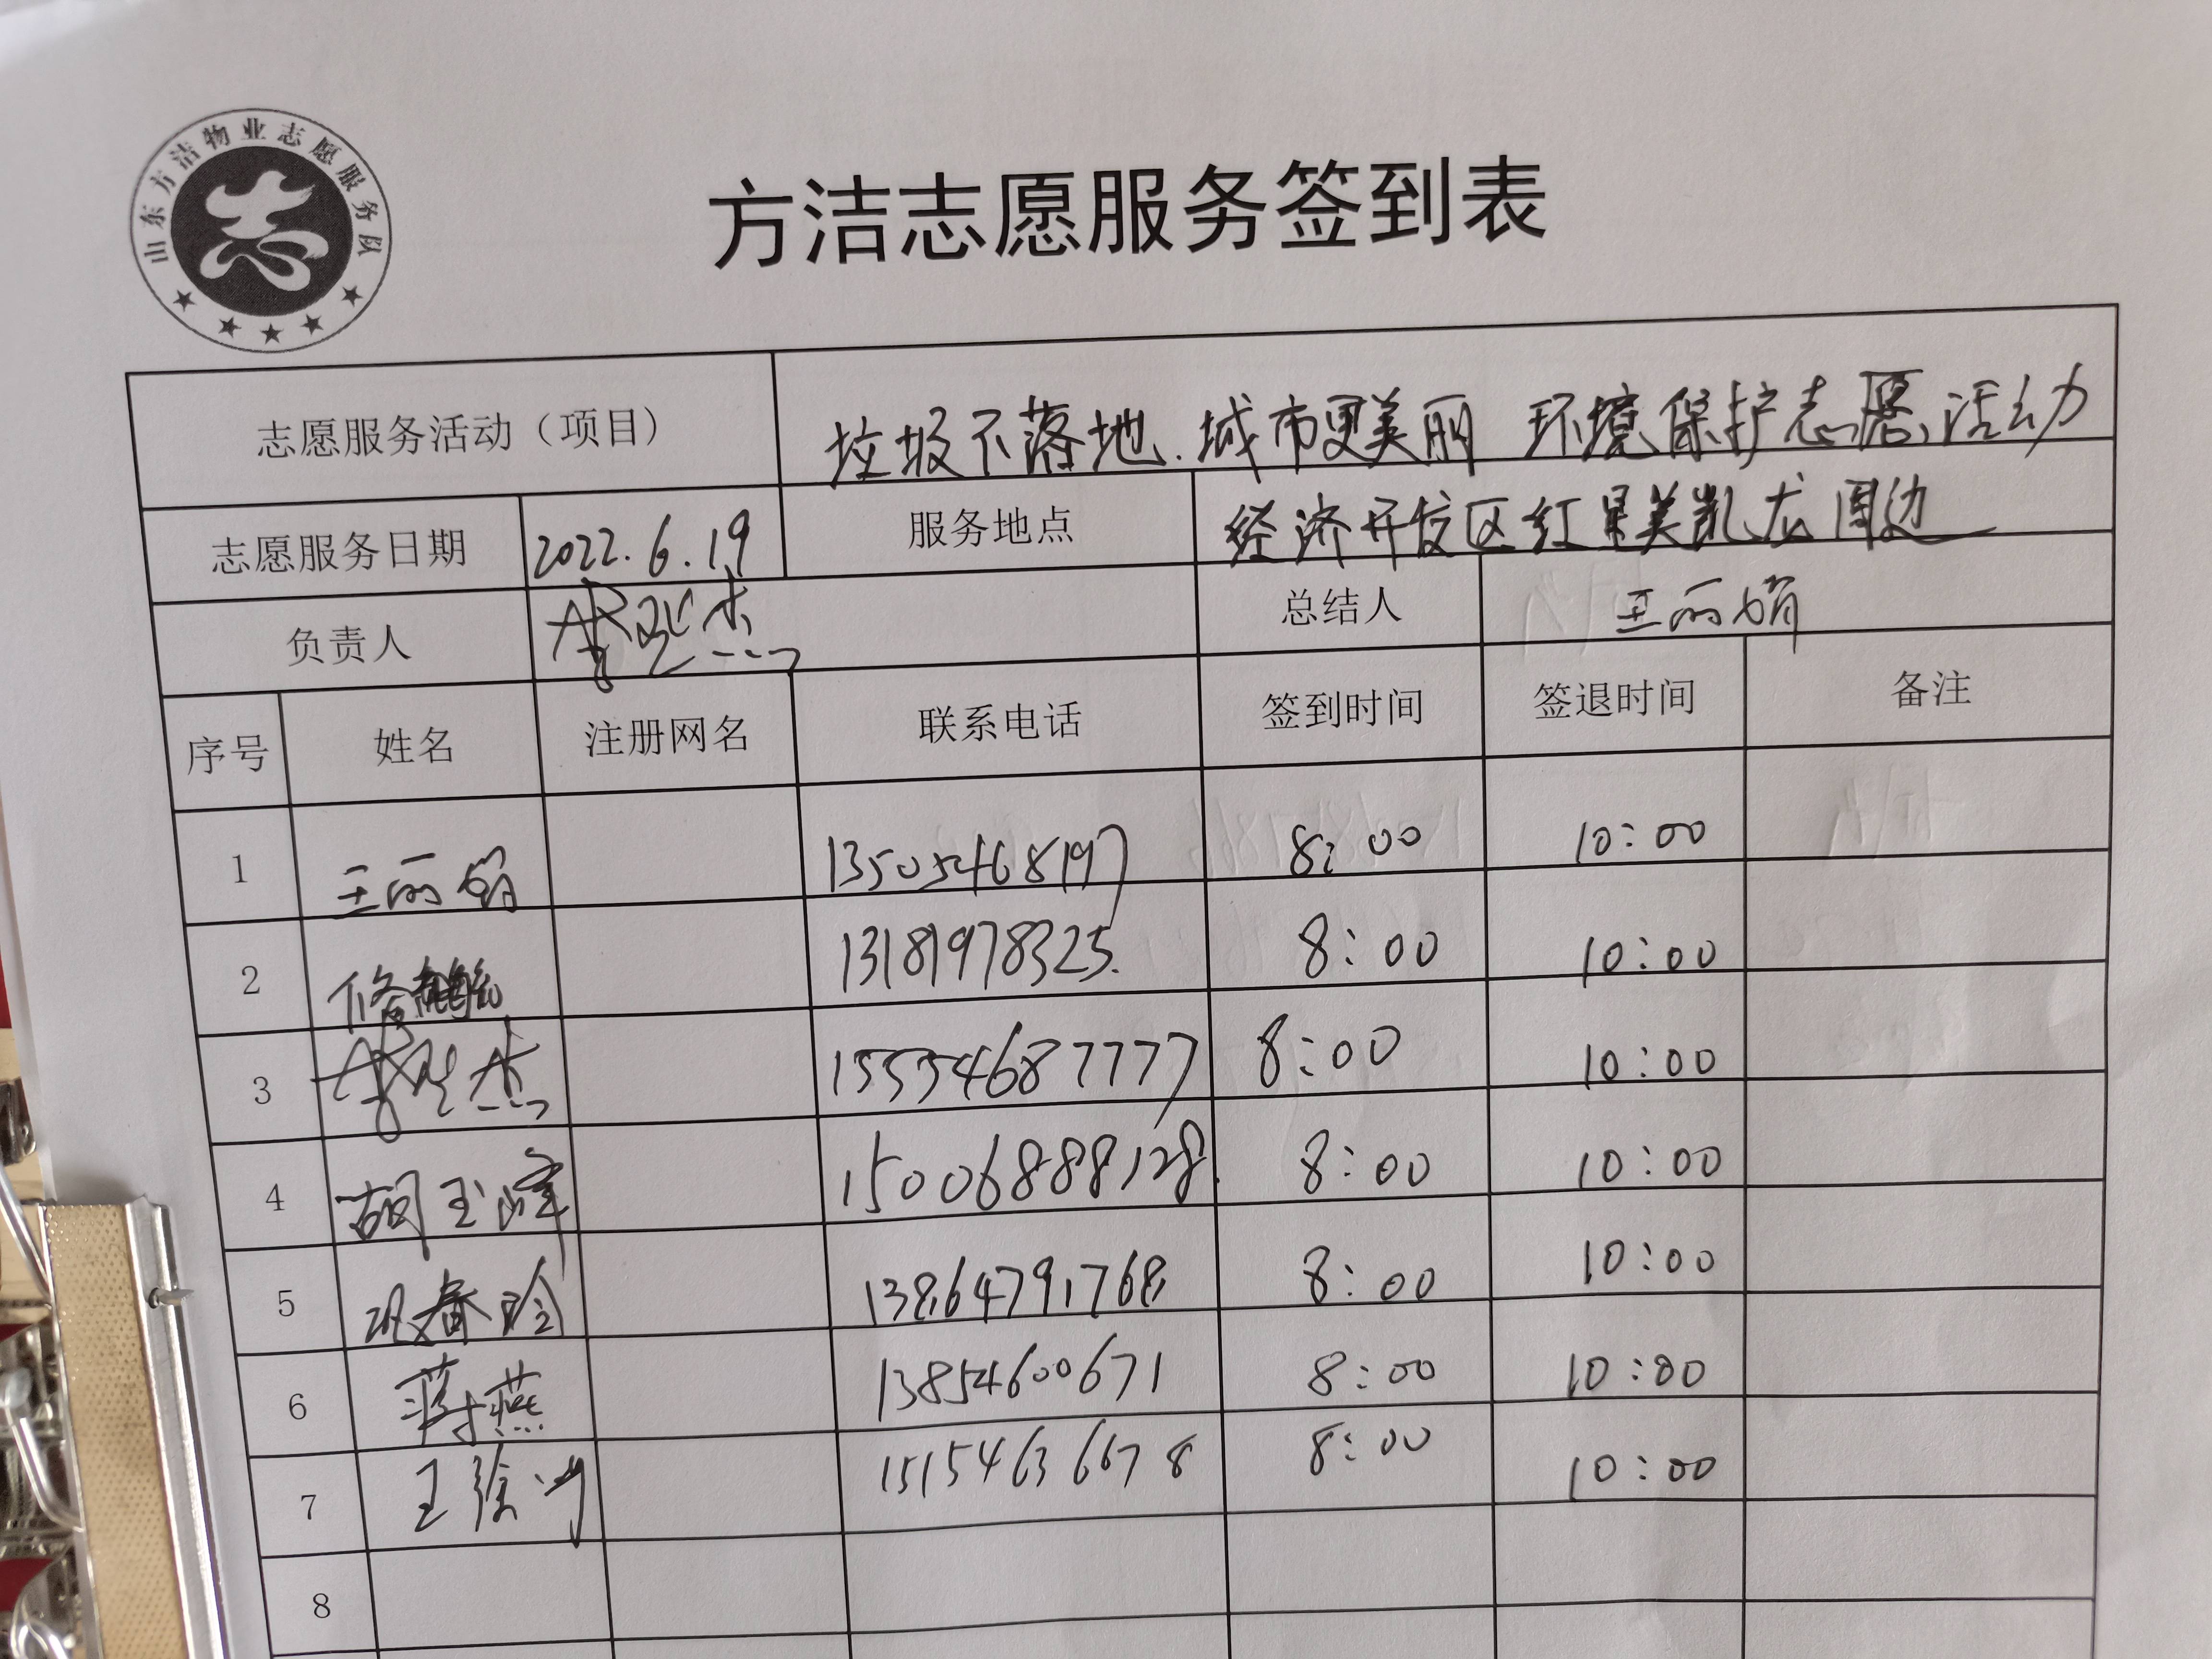 山东方洁物业志愿服务队
方洁志愿服务签到表
志愿服务活动（项目） 垃圾不落地.城市更美丽 环境保护志愿活动
志愿服务日期 2022.6.19 服务地点 经济开发区红星美凯龙周边
负责人 总结人 王丽娟
序号 姓名 注册网名 联系电话 签到时间 签退时间 备注
1 王丽娟 13505468197 8:00 10:00
2 13181978325. 8:00 10:00
3 15554687777 8:00 10:00
4 胡玉峰 15006888128. 8:00 10:00
5 巩春玲 13864791768 8:00 10:00
6 蒋燕 13854600671 8:00 10:00
7 王 15154636678 8:00 10:00
8